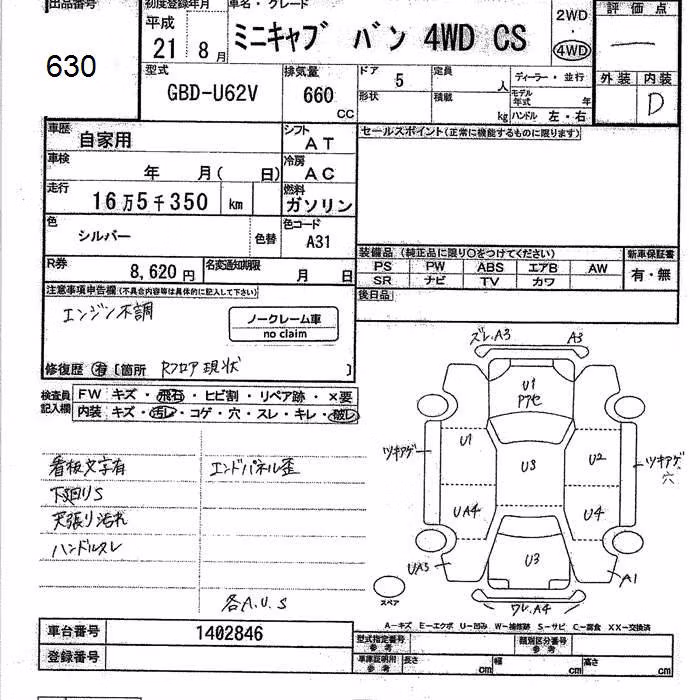 出品番号
630
初度登録年月
平成
21 8月
車名・グレード
ミニキャブ バン 4WD CS
2WD
・
4WD
評価点
―
外装 内装
D
型式
GBD-U62V
排気量
660
CC
ドア
5
定員
人
形状
積載
kg
ディーラー・並行
モデル年式 年
ハンドル 左・右
車歴
自家用
シフト
AT
車検
年 月( 日)
冷房
AC
走行
16万5千350 km
燃料
ガソリン
色
シルバー
色替
色コード
A31
R券
8,620円
名変通知期限
月 日
セールスポイント(正常に機能するものに限ります)
装備品 (純正品に限り○をつけてください)
新車保証書
PS PW ABS エアB AW
SR ナビ TV カワ
有・無
後日品
注意事項申告欄(不具合内容等は具体的に記入して下さい)
エンジン不調
ノークレーム車
no claim
修復歴 有 [箇所 Rフロア現状 ]
検査員記入欄
FW キズ・飛石・ヒビ割・リペア跡・×要
内装 キズ・汚レ・コゲ・穴・スレ・キレ・破レ
看板文字有
下廻りS
天張り汚れ
ハンドルスレ
エンドパネル歪
各A.U.S
ズレ.A3
A3
U1
アクセ
U1
U3
U2
ツキアゲ
ツキアゲ
穴
UA4
U4
UA3
U3
A1
スペア
ワレ.A4
A-キズ E-エクボ U-凹み W-補修跡 S-サビ C-腐食 XX-交換済
車台番号
1402846
登録番号
型式指定番号
参考
類別区分番号
参考
車庫証明用
参考
長さ cm
幅 cm
高さ cm